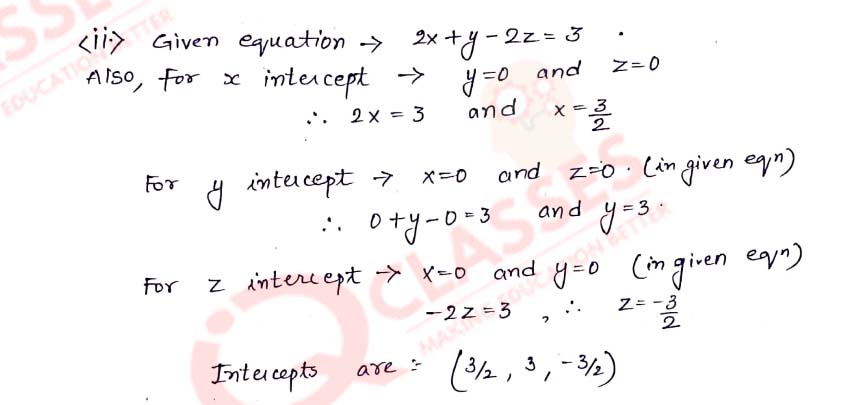 <ii> Given equation → 2x+y-2z=3 .
Also, for x intercept → y=0 and z=0
∴ 2x = 3 and x = 3/2
For y intercept → x=0 and z=0. (in given eqⁿ)
∴ 0+y-0=3 and y=3.
For z intercept → x=0 and y=0 (in given eqⁿ)
-2z=3 , ∴ z = -3/2
Intercepts are :- (3/2, 3, -3/2)
CLASSES
MAKING EDUCATION BETTER